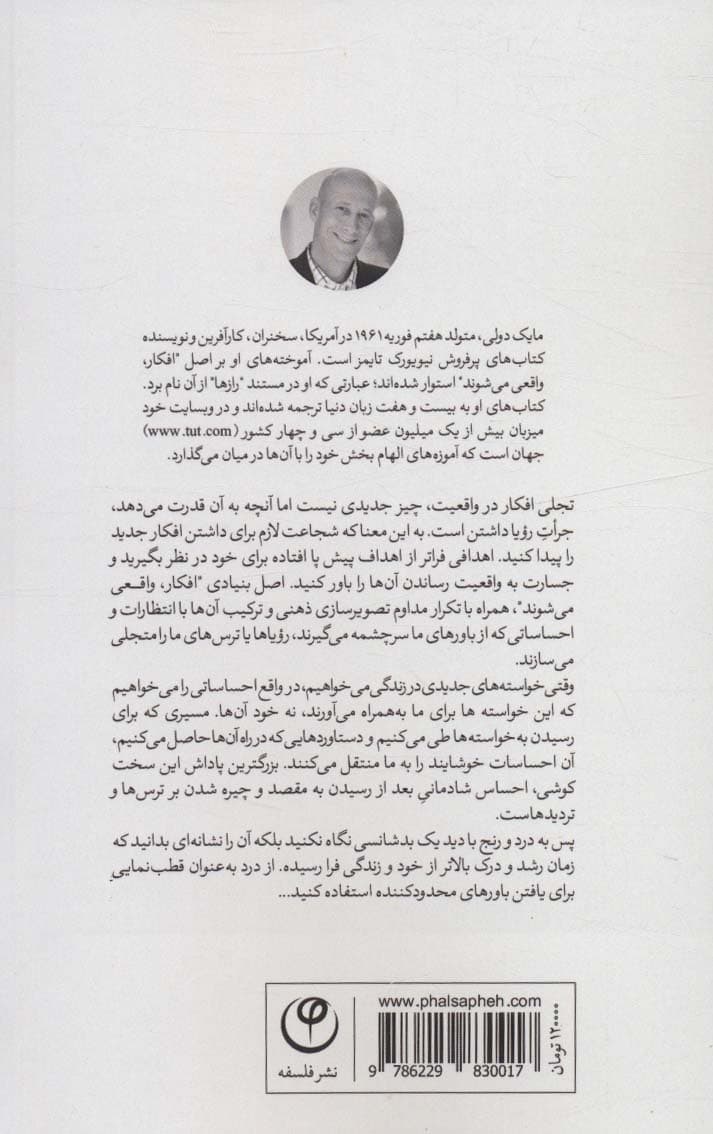 مایک دولی، متولد هفتم فوریه ۱۹۶۱ در آمریکا، سخنران، کارآفرین و نویسنده
کتاب‌های پرفروش نیویورک تایمز است. آموخته‌های او بر اصل "افکار،
واقعی می‌شوند" استوار شده‌اند؛ عبارتی که او در مستند "رازها" از آن نام برد.
کتاب‌های او به بیست و هفت زبان دنیا ترجمه شده‌اند و در وبسایت خود
(www.tut.com) میزبان بیش از یک میلیون عضو از سی و چهار کشور
جهان است که آموزه‌های الهام بخش خود را با آن‌ها در میان می‌گذارد.
تجلی افکار در واقعیت، چیز جدیدی نیست اما آنچه به آن قدرت می‌دهد،
جرأتِ رؤیا داشتن است. به این معنا که شجاعت لازم برای داشتن افکار جدید
را پیدا کنید. اهدافی فراتر از اهداف پیش پا افتاده برای خود در نظر بگیرید و
جسارت به واقعیت رساندن آن‌ها را باور کنید. اصل بنیادی "افکار، واقعی
می‌شوند"، همراه با تکرار مداوم تصویرسازی ذهنی و ترکیب آن‌ها با انتظارات و
احساساتی که از باورهای ما سرچشمه می‌گیرند، رؤیاها یا ترس‌های ما را متجلی
می‌سازند.
وقتی خواسته‌های جدیدی در زندگی می‌خواهیم، در واقع احساساتی را می‌خواهیم
که این خواسته ها برای ما به‌همراه می‌آورند، نه خود آن‌ها. مسیری که برای
رسیدن به خواسته‌ها طی می‌کنیم و دستاوردهایی که در راه آن‌ها حاصل می‌کنیم،
آن احساسات خوشایند را به ما منتقل می‌کنند. بزرگترین پاداش این سخت
کوشی، احساس شادمانیِ بعد از رسیدن به مقصد و چیره شدن بر ترس‌ها و
تردیدهاست.
پس به درد و رنج با دید یک بدشانسی نگاه نکنید بلکه آن را نشانه‌ای بدانید که
زمان رشد و درک بالاتر از خود و زندگی فرا رسیده. از درد به‌عنوان قطب‌نمایی
برای یافتن باورهای محدودکننده استفاده کنید...
www.phalsapheh.com
۱۲۰۰۰۰ تومان
9 786229 830017
نشر فلسفه